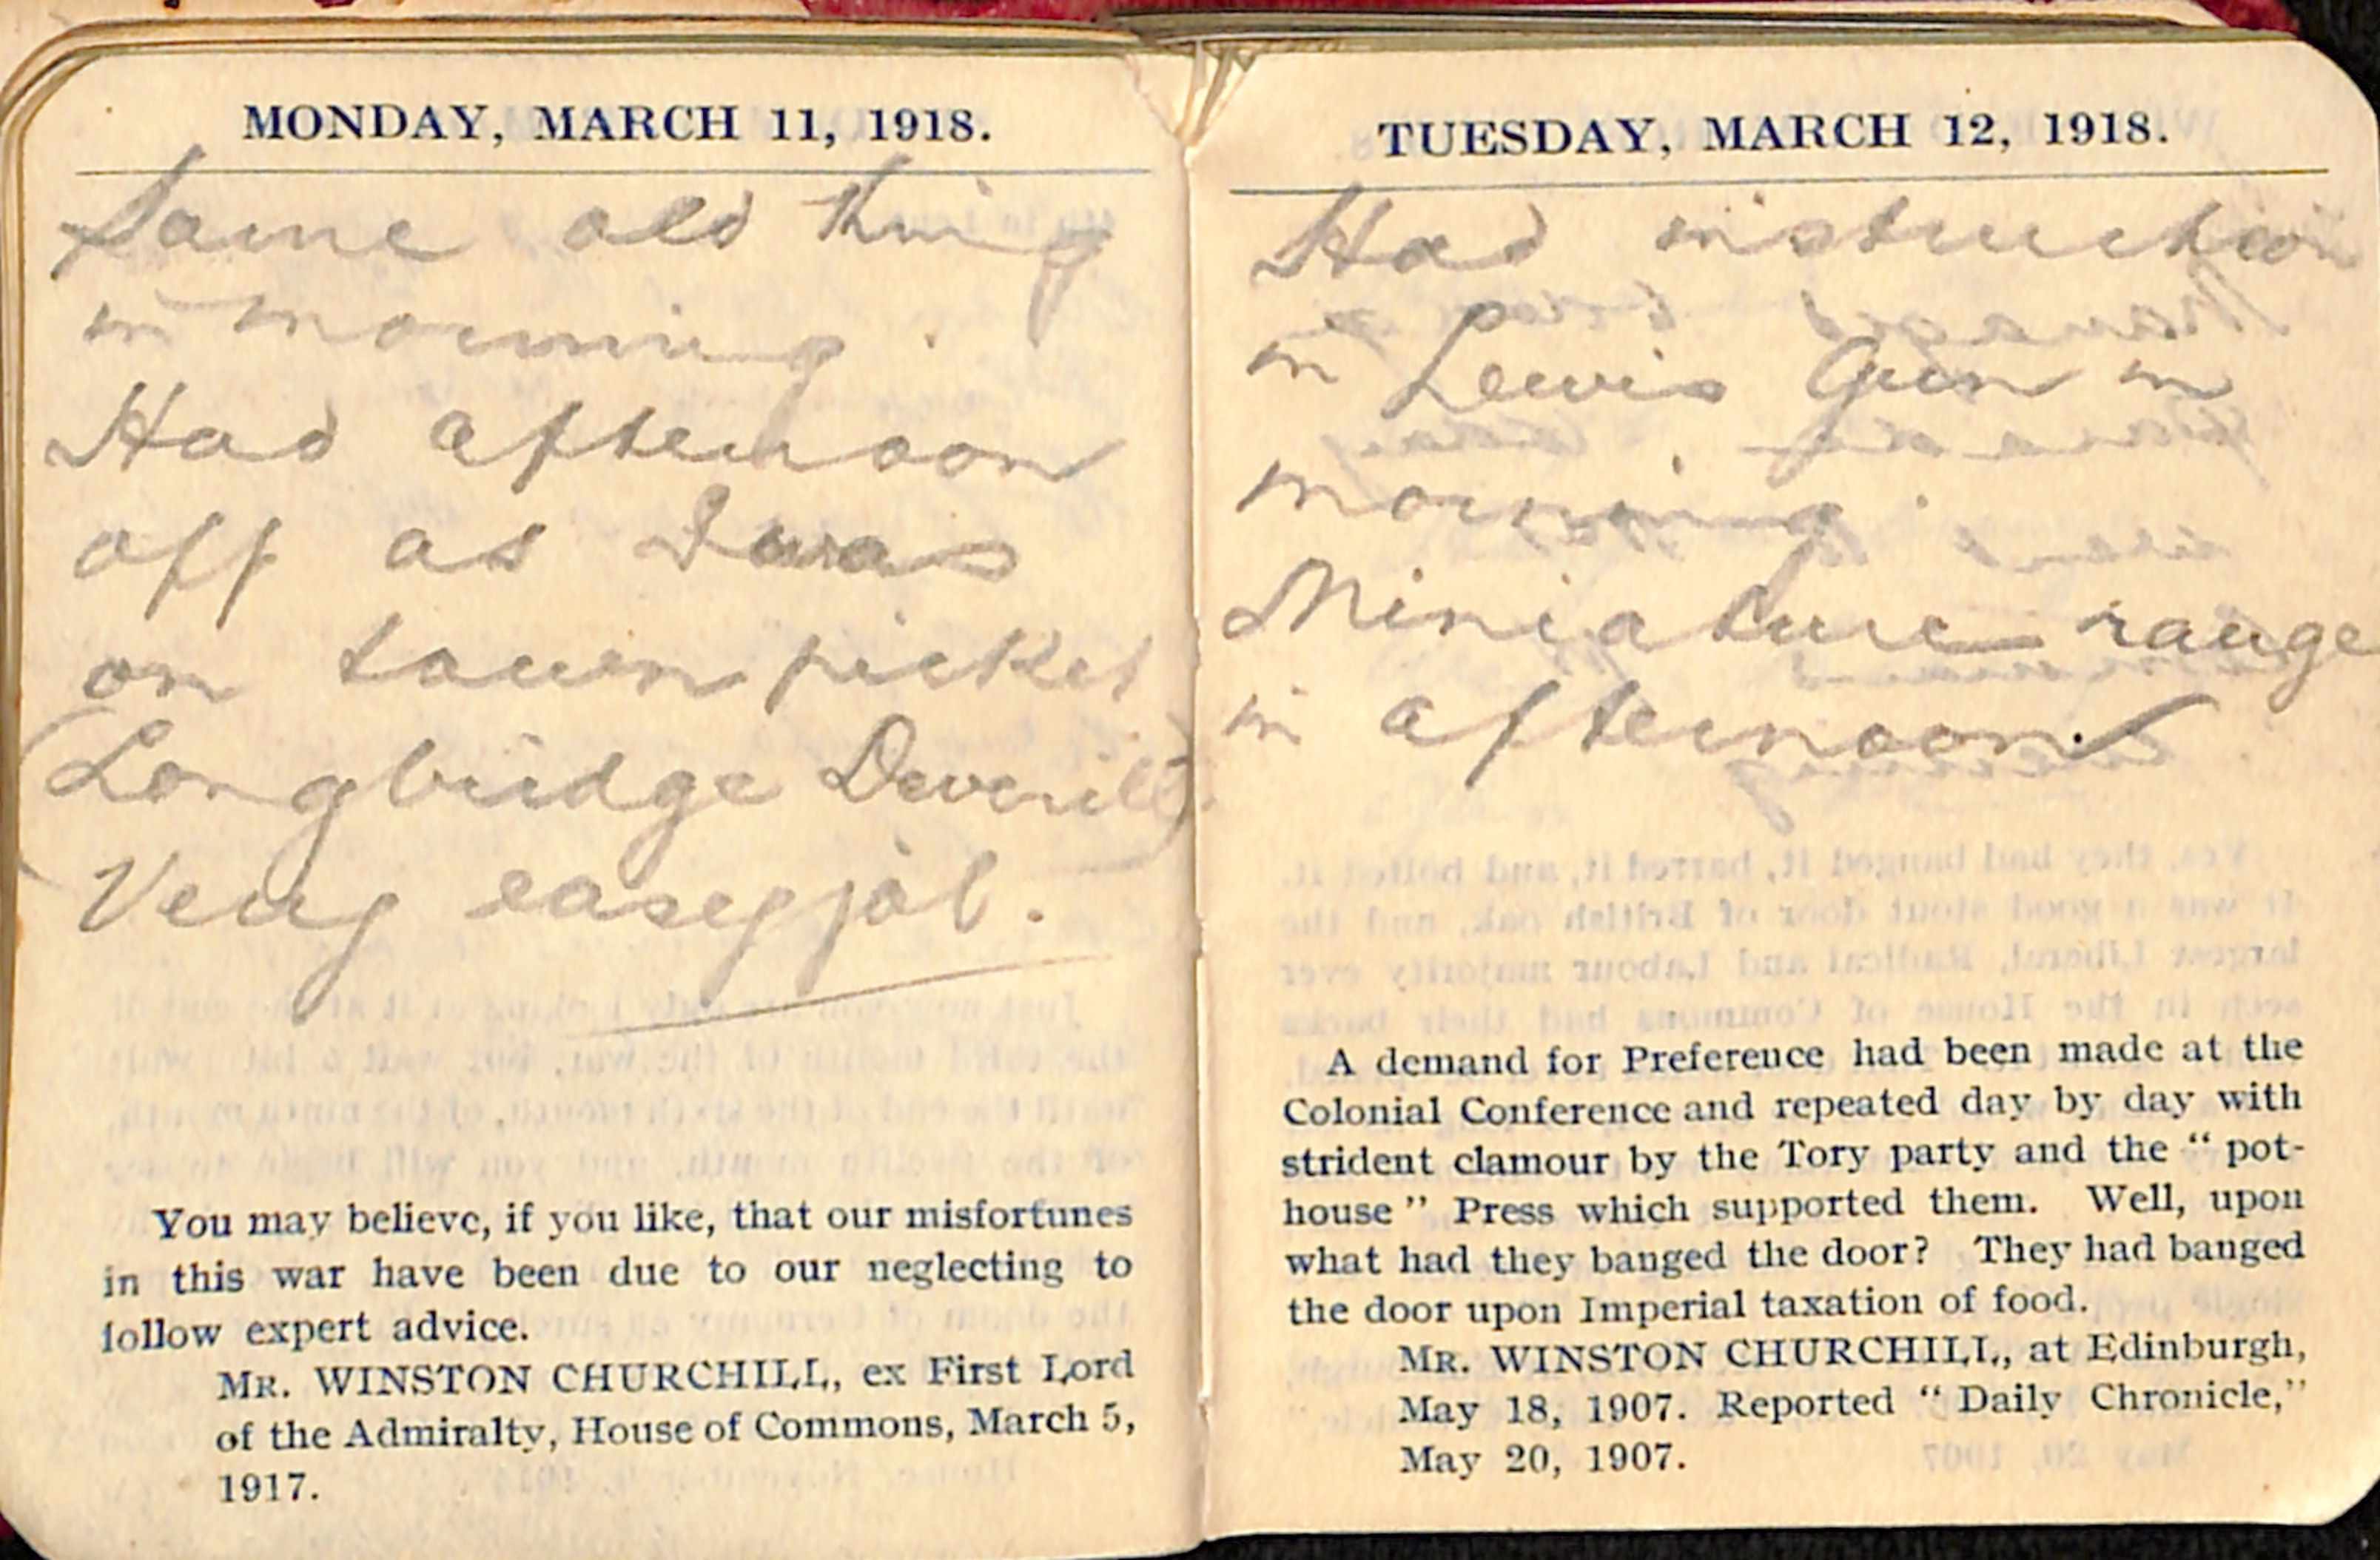 MONDAY, MARCH 11, 1918.
Same old thing
in morning.
Had afternoon
off as I was
on town picket
(Longbridge Deverill)
Very easy job.
You may believe, if you like, that our misfortunes
in this war have been due to our neglecting to
follow expert advice.
MR. WINSTON CHURCHILL, ex First Lord
of the Admiralty, House of Commons, March 5,
1917.
TUESDAY, MARCH 12, 1918.
Had instruction
in Lewis Gun in
morning.
Miniature range
in afternoon.
A demand for Preference had been made at the
Colonial Conference and repeated day by day with
strident clamour by the Tory party and the “ pot-
house ” Press which supported them. Well, upon
what had they banged the door? They had banged
the door upon Imperial taxation of food.
MR. WINSTON CHURCHILL, at Edinburgh,
May 18, 1907. Reported “ Daily Chronicle,”
May 20, 1907.